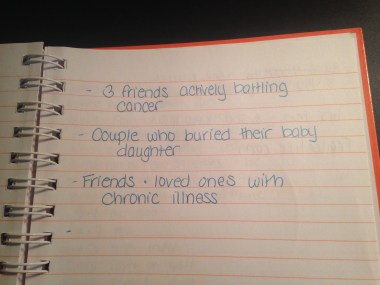 - 3 friends actively battling
cancer
- Couple who buried their baby
daughter
- Friends + loved ones with
chronic illness
-